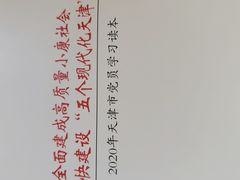 全面建成高质量小康社会
快建设“五个现代化天津”
2020年天津市党员学习读本